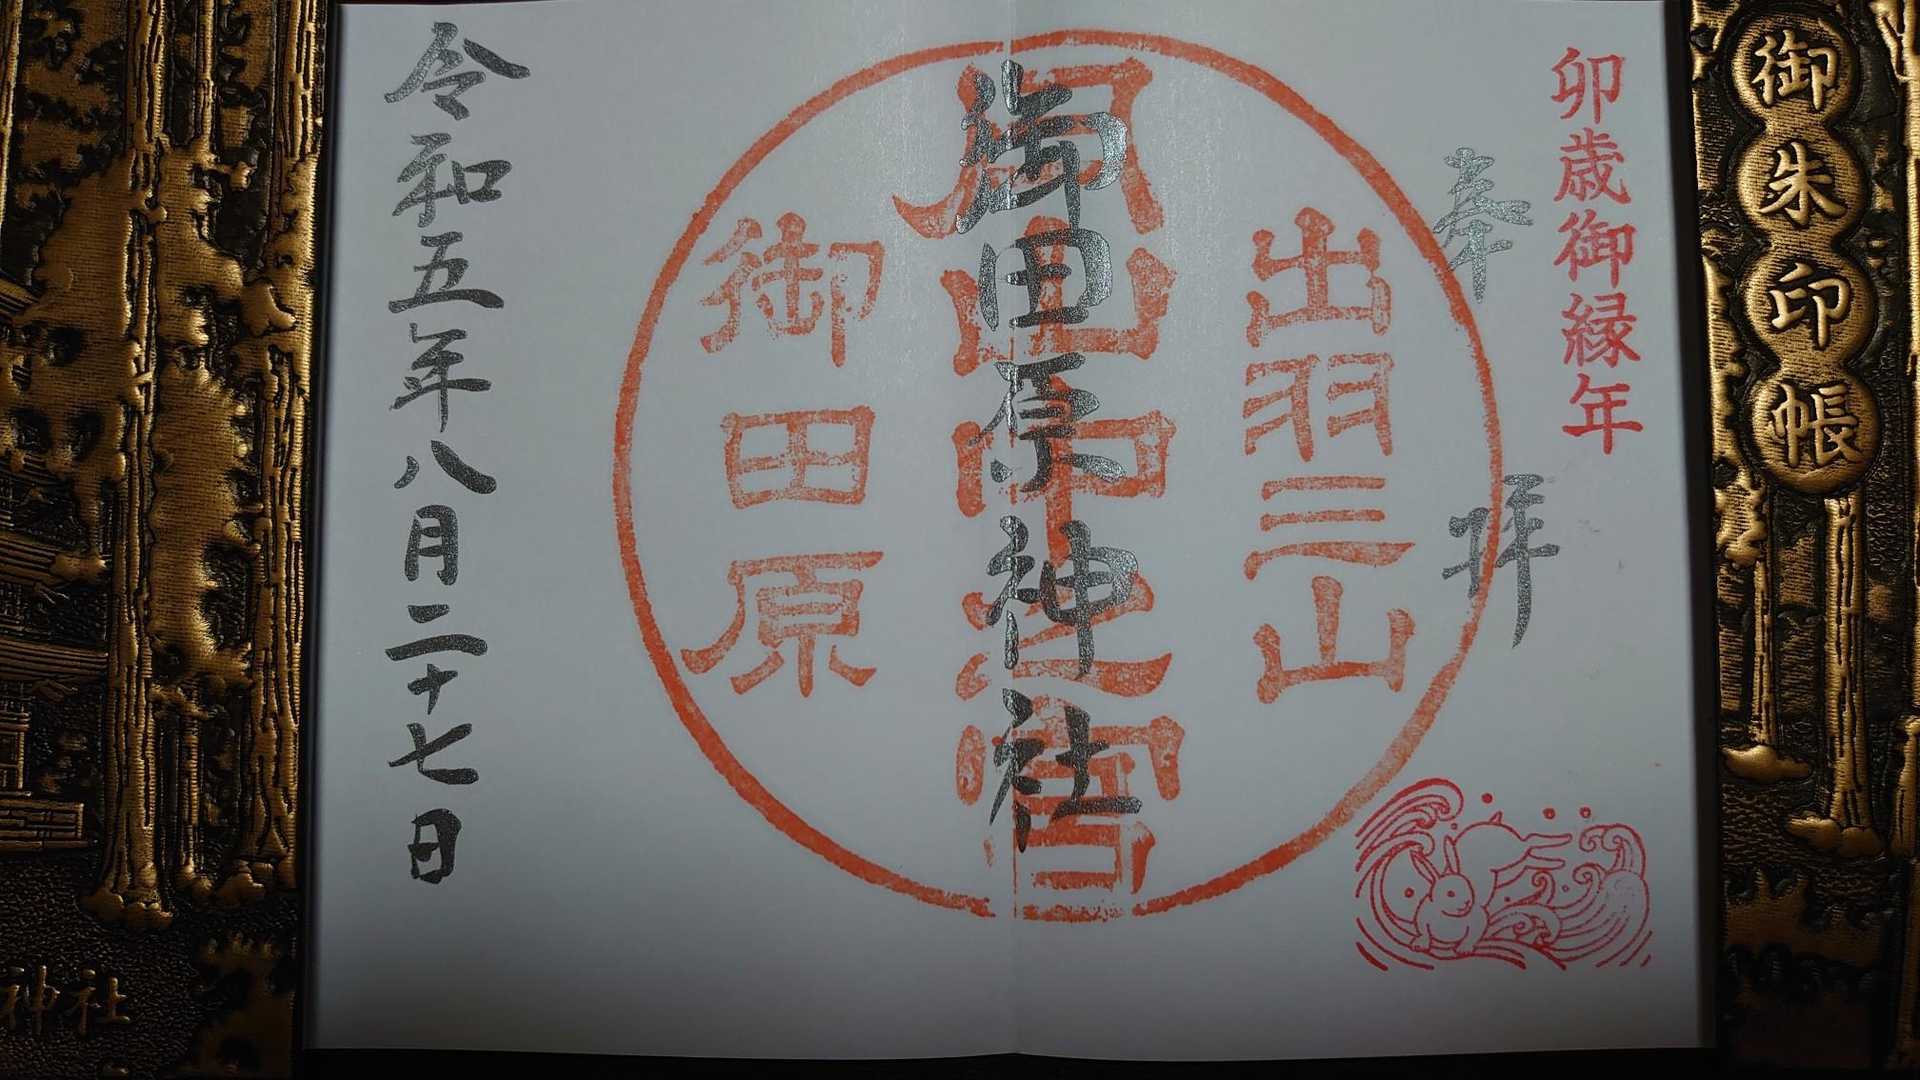 御朱印帳
卯歳御縁年
奉拝
出羽三山
御田原神社
御田原
令和五年八月二十七日
神社